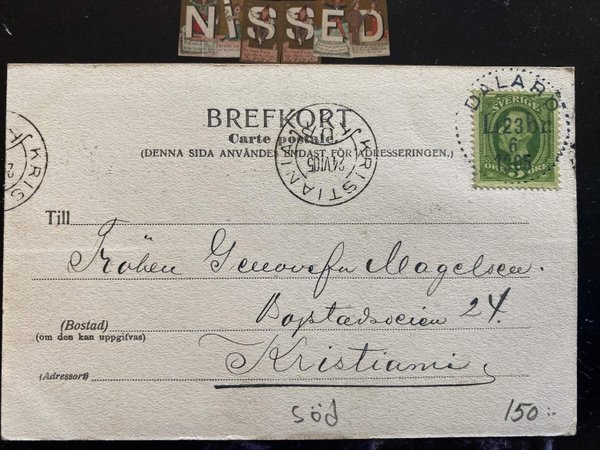 NISSED
BREFKORT
Carte postale.
(DENNA SIDA ANVÄNDES ENDAST FÖR ADRESSERINGEN.)
KRISTIANIA
24VI05
KRIS
DALARÖ
23
6
1905
SVERIGE
Till
Fröken Genovefa Magelsen.
24.
(Bostad)
(om den kan uppgifvas)
Kristiania
(Adressort)
söd
150:-